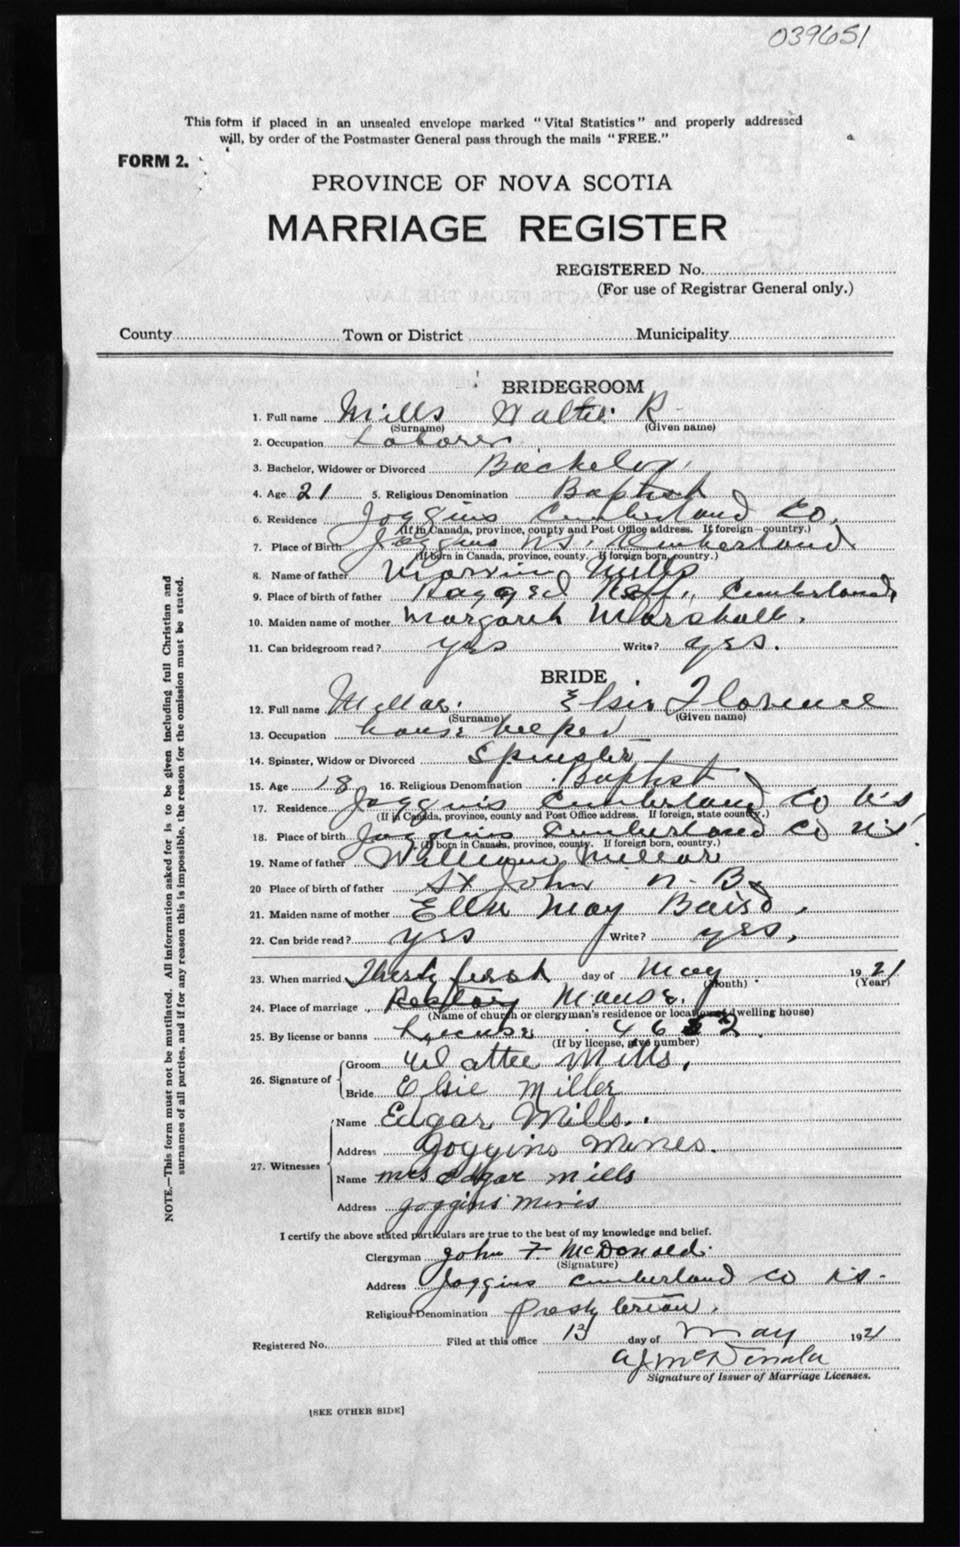 039651
This form if placed in an unsealed envelope marked "Vital Statistics" and properly addressed
will, by order of the Postmaster General pass through the mails "FREE."
FORM 2.
PROVINCE OF NOVA SCOTIA
MARRIAGE REGISTER
REGISTERED No.
(For use of Registrar General only.)
County Town or District Municipality
BRIDEGROOM
1. Full name Mills Walter R
(Surname) (Given name)
2. Occupation Laborer
3. Bachelor, Widower or Divorced Bachelor
4. Age 21 5. Religious Denomination Baptist
6. Residence Joggins Cumberland Co.
(If in Canada, province, county and Post Office address. If foreign—country.)
7. Place of Birth Joggins N.S. Cumberland
(If born in Canada, province, county. If foreign born, country.)
8. Name of father Mills
9. Place of birth of father Ragged Reff, Cumberland,
10. Maiden name of mother Margaret Marshall.
11. Can bridegroom read? yes Write? yes.
BRIDE
12. Full name Millar. Elsie Florence
(Surname) (Given name)
13. Occupation house keeper
14. Spinster, Widow or Divorced Spinster
15. Age 18 16. Religious Denomination Baptist
17. Residence Joggins Cumberland Co N.S
(If in Canada, province, county and Post Office address. If foreign, state country.)
18. Place of birth Joggins Cumberland Co N.S
(If born in Canada, province, county. If foreign born, country.)
19. Name of father William Millar
20 Place of birth of father St John N-B
21. Maiden name of mother Ellen May Baird,
22. Can bride read? yes Write? yes,
23. When married Thirty first day of May 1921
(Month) (Year)
24. Place of marriage Manse.
(Name of church or clergyman's residence or location of dwelling house)
25. By license or banns License
(If by license, give number)
26. Signature of
Groom Walter Mills.
Bride Elsie Miller
27. Witnesses
Name Edgar Mills.
Address Joggins Mines.
Name Mrs Edgar Mills
Address Joggins Mines
I certify the above stated particulars are true to the best of my knowledge and belief.
Clergyman John F McDonald.
(Signature)
Address Joggins Cumberland Co N.S.
Religious Denomination Presbyterian.
Registered No. Filed at this office 13 day of May 1921
Signature of Issuer of Marriage Licenses.
[SEE OTHER SIDE]
NOTE.—This form must not be mutilated. All information asked for is to be given including full Christian and
surnames of all parties, and if for any reason this is impossible, the reason for the omission must be stated.